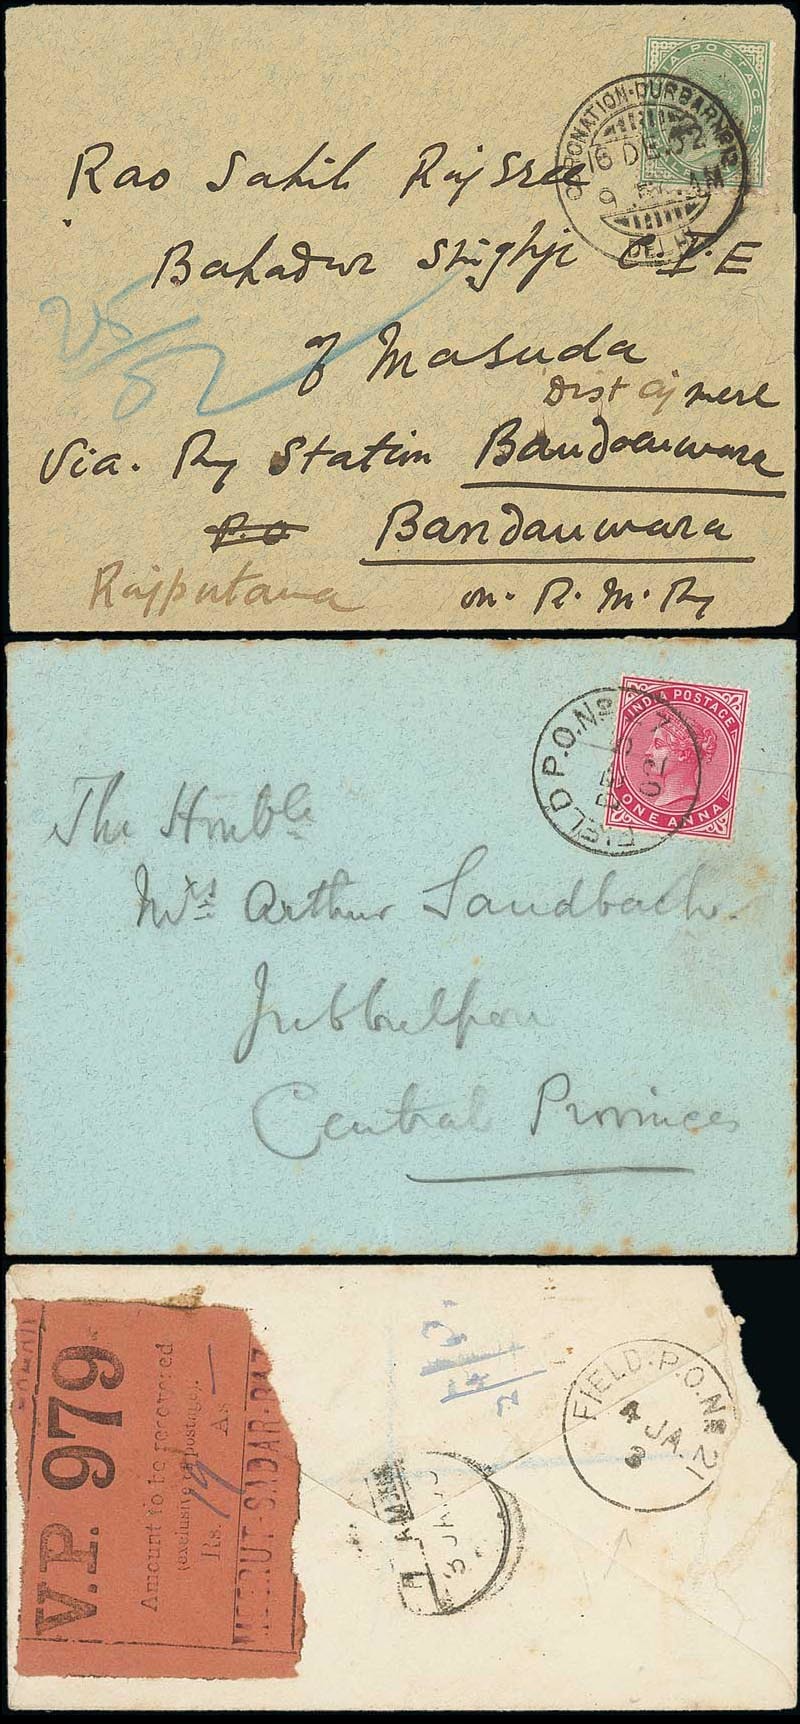 INDIA POSTAGE
CORONATION-DURBAR
16 DE. 02
9 AM
DELHI
Rao Sahib Raj Sree
Bahadur Singhji C.I.E
of Masuda
Dist Ajmere
25/52
Via. Ry Station Bandanwara
P.O Bandanwara
Rajputana on. R. M. Ry
INDIA POSTAGE
ONE ANNA
FIELD P.O. No
02
The Honble
Mrs Arthur Sandbach.
Jubbulpore
Central Provinces
V.P. 979
Amount to be recovered
(exclusive of postage).
Rs. 19 As. —
MEERUT-SADAR-BAZ
FIELD. P.O. No 21
4 JA.
3
AM